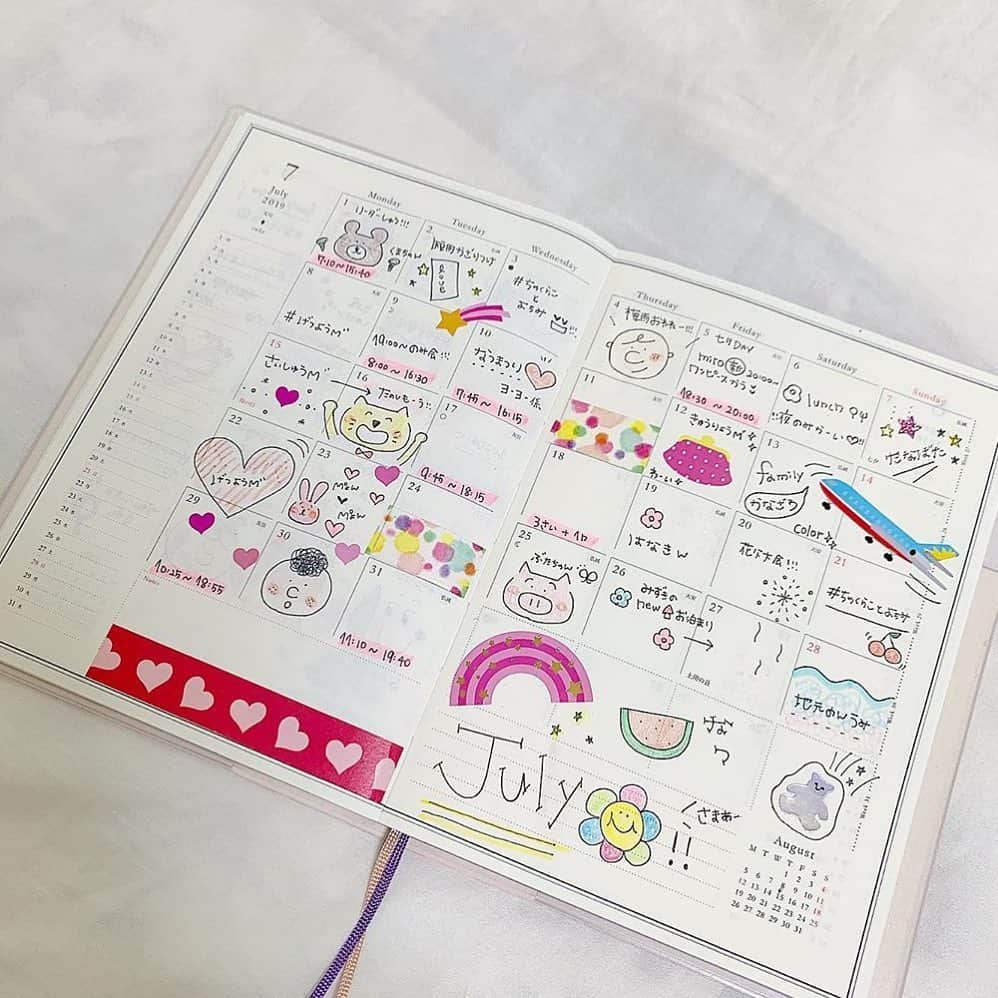 7
July
2019
Monday
Tuesday
Wednesday
Thursday
Friday
Saturday
Sunday
1
リーダーしゅう!!!
くまちゃん
7:10〜15:40
2
短冊かざりつけ
love
3
#ちゅくらこ
と
よちみ
4
梅雨おわれー!!!
5
七夕DAY
miro
20:00〜
ワンピースかう
18:30〜20:00
6
lunch
!!夜のみかーい♡!!
7
たなばた
8
#げつようM
9
19:00〜のみ会!!!
8:00〜16:30
10
なつまつり
ヨーヨー係
7:45〜16:15
11
12
きゅうりょうM
わーい
13
family
かなざわ
color
14
15
さいしゅうM
16
たいいもーう!!
17
9:45〜18:15
18
3さい+1か
19
はなきん
20
花火大会!!!
21
#ちゅくらことよちみ
22
げつようM
23
Mさん
Mさん
24
25
ぶたちゃん
26
みずきの
newお泊まり
27
28
地元のんうみ
29
10:25〜18:55
30
31
11:10〜19:40
Notes
なつ
July!!
さまぁー
August
M T W T F S S
1 2 3 4
5 6 7 8 9 10 11
12 13 14 15 16 17 18
19 20 21 22 23 24 25
26 27 28 29 30 31